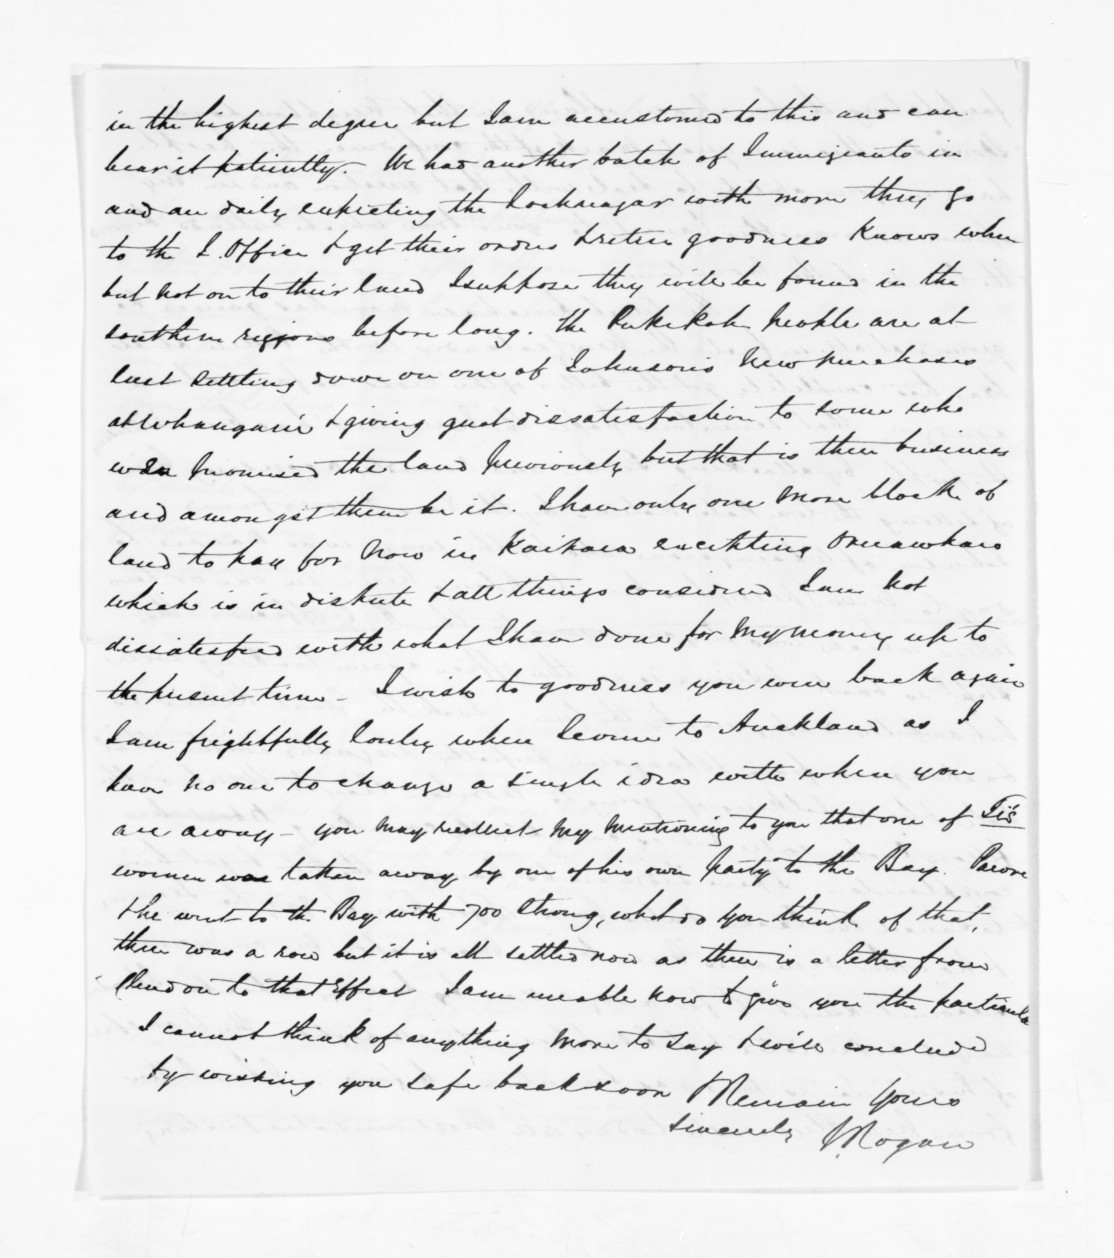 in the highest degree but I am accustomed to this and can
bear it patiently. We had another batch of Immigrants in
and are daily expecting the Lochnagar with more they go
to the L. Office & get their orders & retire goodness knows where
but not on to their land I suppose they will be found in the
southern regions before long. The Pukekohe people are at
last settling down on one of Johnson's new purchases
at Whangarei & giving great dissatisfaction to some who
were promised the land previously but that is their business
and amongst them be it. I have only one more block of
land to pay for now in Kaipara excepting Oruawharo
which is in dispute & all things considered I am not
dissatisfied with what I have done for my money up to
the present time - I wish to goodness you were back again
I am frightfully lonely when I come to Auckland as I
have no one to change a single idea with when you
are away - you may recollect my mentioning to you that one of Tis
women was taken away by one of his own party to the Bay. Parore
& he went to the Bay with 700 strong, what do you think of that,
there was a row but it is all settled now as there is a letter from
Clendon to that effect I am unable now to give you the particula
I cannot think of anything more to say & will conclude
by wishing you safe back soon I Remain Yours
Sincerely J. Rogan